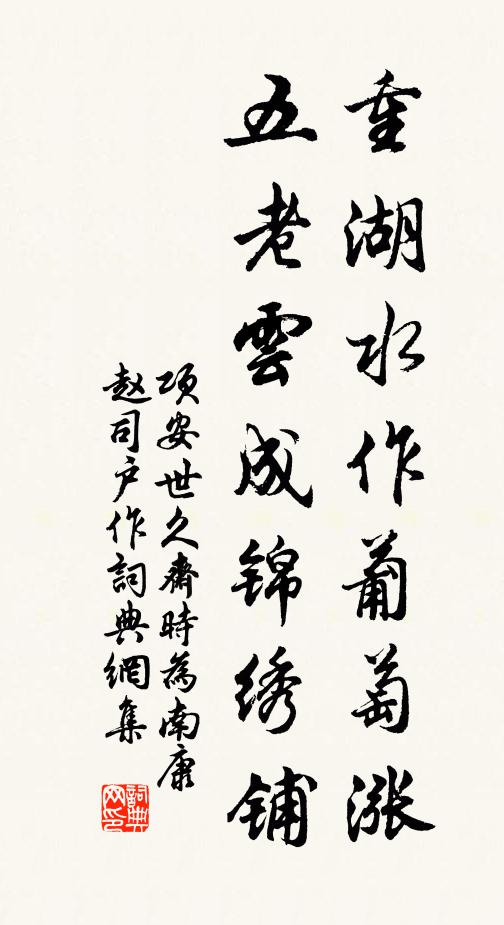 重湖水作葡萄涨
五老雲成锦绣铺
项安世久齋時為南康
赵司户作詞典網集
詞典网印